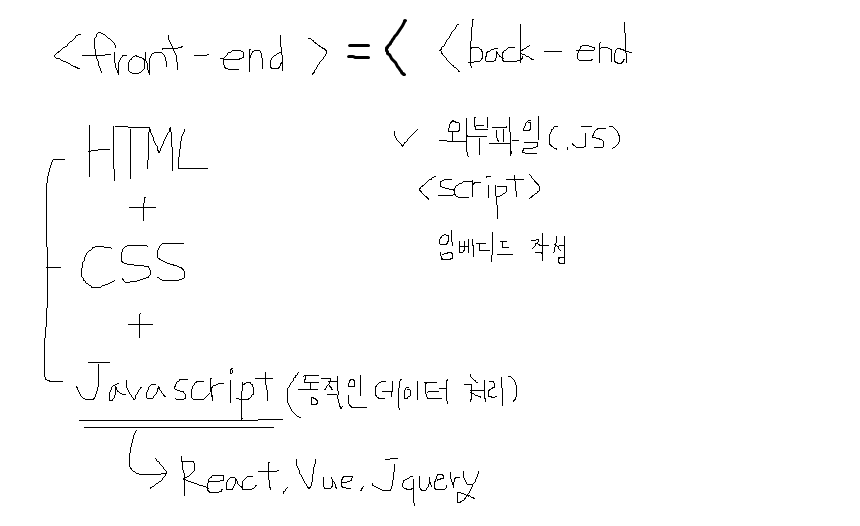 <front-end> =< <back-end
HTML
+
CSS
+
Javascript (동적인 데이터 처리)
React, Vue, Jquery
✓ 외부파일(.JS)
<script>
임베디드 작성